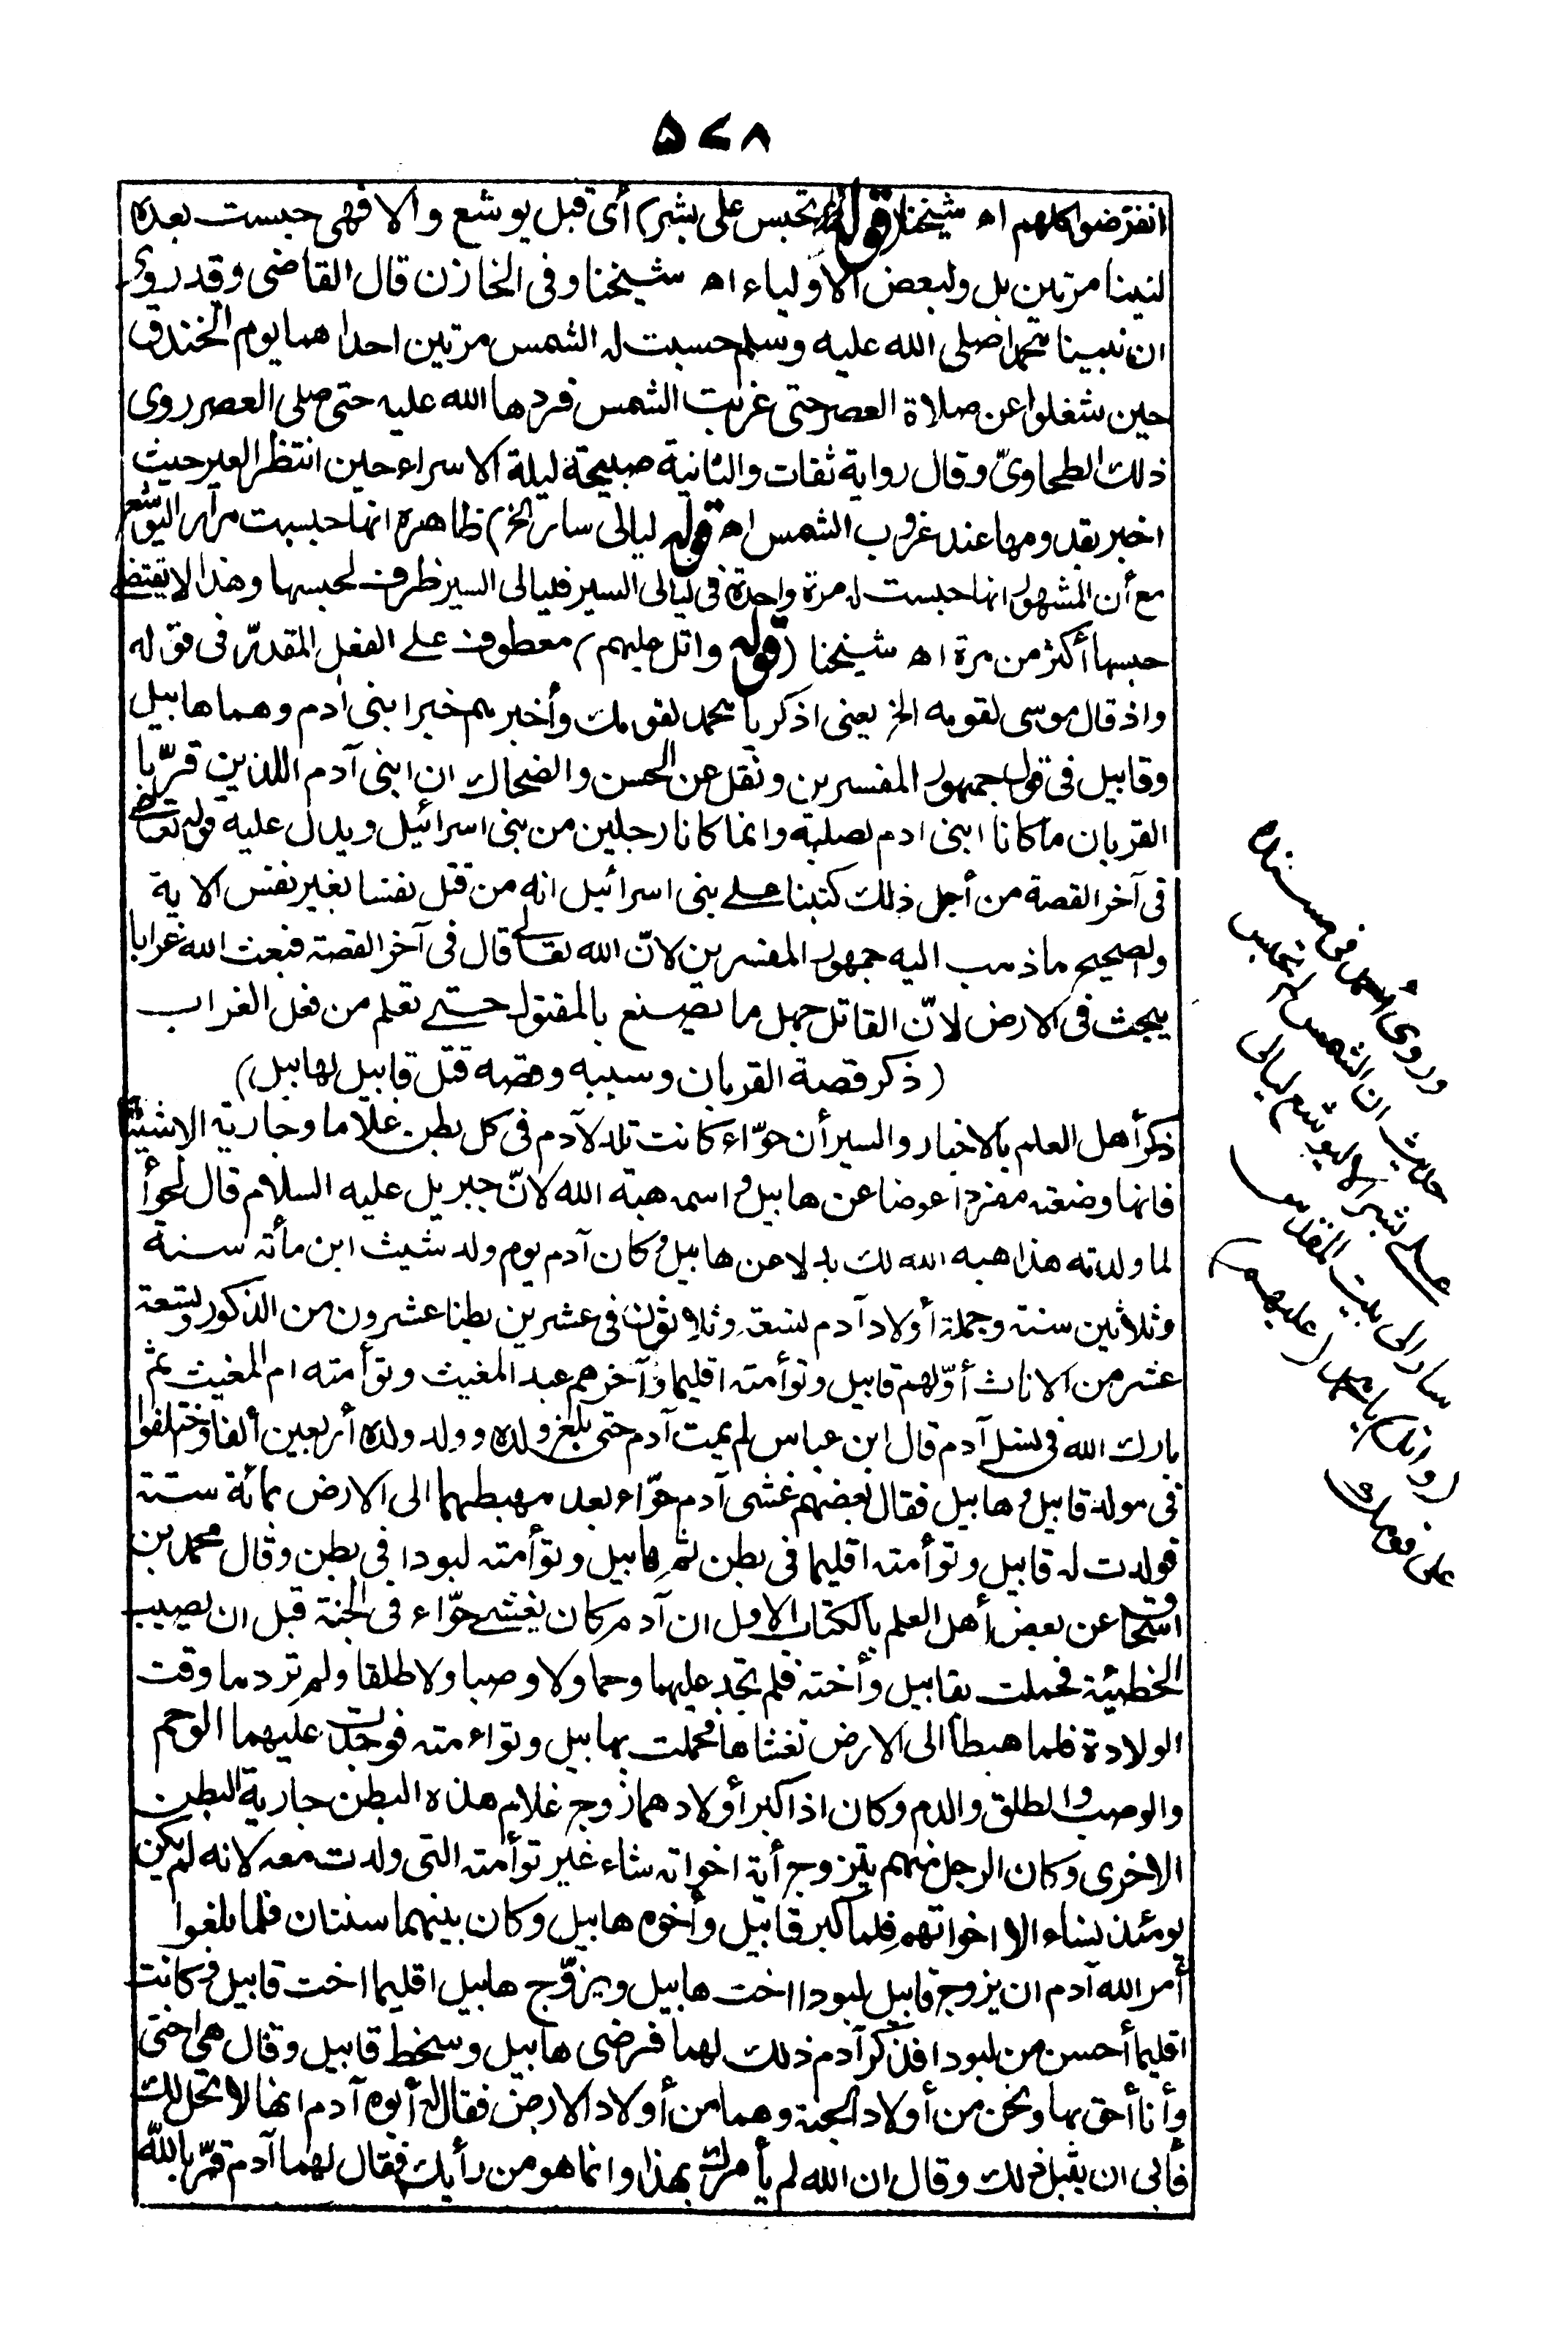 ٥٧٨
انقرضوا كلهم اه شيخنا (قوله لم تحبس على بشر) أى قبل يوشع والا فهى حبست بعده
لنبينا مرتين بل ولبعض الأولياء اه شيخنا وفى الخازن قال القاضى وقد روى
ان نبينا محمدا صلى الله عليه وسلم حبست له الشمس مرتين احداهما يوم الخندق
حين شغلوا عن صلاة العصر حتى غربت الشمس فردها الله عليه حتى صلى العصر روى
ذلك الطحاوىّ وقال رواية ثقات والثانية صبيحة ليلة الاسراء حين انتظر العير حيث
اخبر بقدومها عند غروب الشمس اه قوله ليالى سار الخ) ظاهره انها حبست مرارا ليوشع
مع أن المشهور انها حبست له مرة واحدة فى ليالى السير فليالى السير ظرف لحبسها وهذا لا يقتضى
حبسها أكثر من مرة اه شيخنا (قوله واتل عليهم) معطوف على الفعل المقدّر فى قوله
واذ قال موسى لقومه الخ يعنى اذكر يا محمد لقومك وأخبرهم خبر ابنى آدم وهما هابيل
وقابيل فى قول جمهور المفسرين ونقل عن الحسن والضحاك ان ابنى آدم اللذين قرّبا
القربان ما كانا ابنى ادم لصلبه وانما كانا رجلين من بنى اسرائيل ويدل عليه قوله تعالى
فى آخر القصة من أجل ذلك كتبنا على بنى اسرائيل انه من قتل نفسا بغير نفس الاية
والصحيح ما ذهب اليه جمهور المفسرين لانّ الله تعالى قال فى آخر القصة فبعث الله غرابا
يبحث فى الارض لانّ القاتل جهل ما يصنع بالمقتول حتى تعلم من فعل الغراب
(ذكر قصة القربان وسببه وقصه قتل قابيل لهابيل)
ذكر أهل العلم بالاخبار والسير أن حوّاء كانت تلد لآدم فى كل بطن غلاما وجارية الا شيثا
فانها وضعته مفردا عوضا عن هابيل واسمه هبة الله لانّ جبريل عليه السلام قال لحوأ
لما ولدته هذا هبه الله لك بدلا عن هابيل وكان آدم يوم ولد شيث ابن مأته سنة
وثلاثين سنة وجملة أولاد آدم تسعة وثلاثون فى عشرين بطنا عشرون من الذكور وتسعة
عشر من الاناث أوّلهم قابيل وتوأمته اقليما وآخرهم عبد المغيث وتوأمته ام المغيث ثم
بارك الله فى نسل آدم قال ابن عباس لم يمت آدم حتى بلغ ولده وولد ولده أربعين ألفا واختلفوا
فى مولد قابيل وهابيل فقال بعضهم غشى آدم حوّاء بعد مهبطهما الى الارض بمائة سنة
فولدت له قابيل وتوأمته اقليما فى بطن ثم هابيل وتوأمته لبودا فى بطن وقال محمد بن
اسحاق عن بعض أهل العلم بالكتاب الاول ان آدم كان يغشى حوّاء فى الجنة قبل ان يصيب
الخطيئة فحملت بقابيل وأخته فلم تجد عليهما وحما ولا وصبا ولا طلقا ولم تر دما وقت
الولادة فلما هبطا الى الارض تغشاها فحملت بهابيل وتواءمته فوجدت عليهما الوحم
والوصب والطلق والدم وكان اذا كبر أولادهما زوج غلام هذه البطن جارية البطن
الاخرى وكان الرجل منهم يتزوج أية اخواته شاء غير توأمته التى ولدت معه لانه لم يكن
يومئذ نساء الا اخواتهم فلما كبر قابيل وأخوه هابيل وكان بينهما سنتان فلما بلغوا
أمر الله آدم ان يزوج قابيل لبودا اخت هابيل ويزوّج هابيل اقليما اخت قابيل وكانت
اقليما أحسن من لبودا فذكر آدم ذلك لهما فرضى هابيل وسخط قابيل وقال هى اختى
وأنا أحق بها ونحن من أولاد الجنة وهما من أولاد الارض فقال له أبوه آدم انها لا تحل لك
فأبى ان يقبل ذلك وقال ان الله لم يأمرك بهذا وانما هو من رأيك فقال لهما آدم قرّبا لله
وروى أحمد فى مسنده
حديث ان الشمس لم تحبس
على بشر الا ليوشع ليالى
سار الى بيت المقدس
(واتل) يا محمد (عليهم)
على قومك